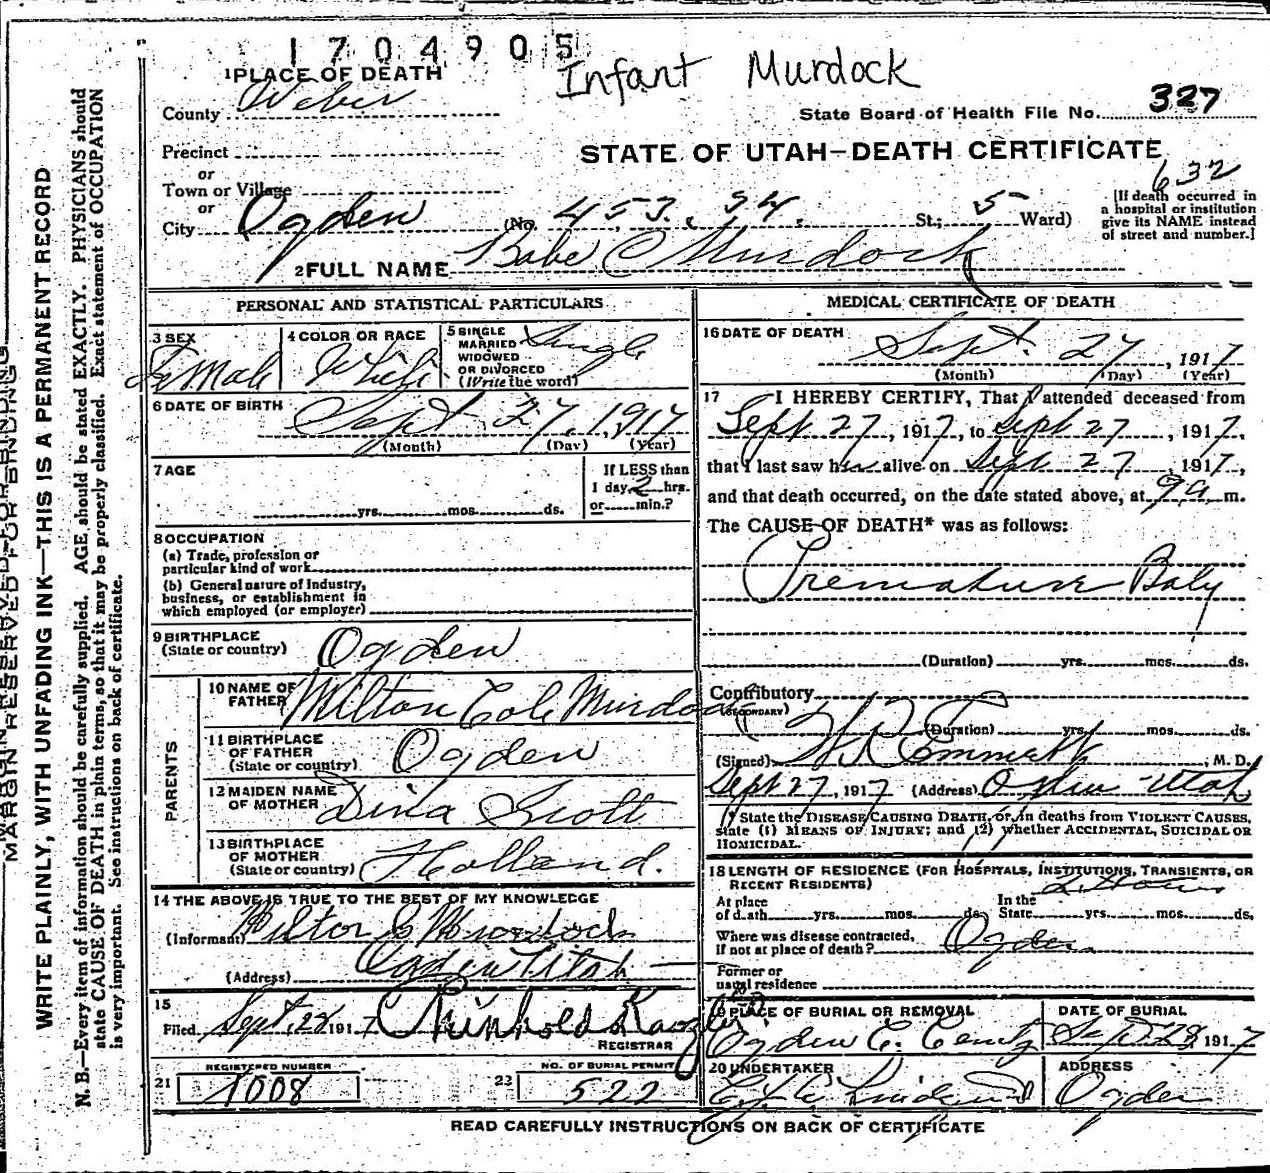 1704905
Infant Murdock
1 PLACE OF DEATH
County Weber
State Board of Health File No. 327
Precinct
STATE OF UTAH—DEATH CERTIFICATE
or
Town or Village
632
or
City Ogden (No. 453. 24. St.; 5 Ward)
[If death occurred in
a hospital or institution
give its NAME instead
of street and number.]
2 FULL NAME Babe Murdock
PERSONAL AND STATISTICAL PARTICULARS
3 SEX Female
4 COLOR OR RACE White
5 SINGLE
MARRIED
WIDOWED
OR DIVORCED
(Write the word) Single
6 DATE OF BIRTH Sept 27, 1917
(Month) (Day) (Year)
7 AGE
yrs. mos. ds.
If LESS than
1 day, 2 hrs.
or min.?
8 OCCUPATION
(a) Trade, profession or
particular kind of work
(b) General nature of Industry,
business, or establishment in
which employed (or employer)
9 BIRTHPLACE
(State or country) Ogden
PARENTS
10 NAME OF
FATHER Milton Cole Murdock
11 BIRTHPLACE
OF FATHER
(State or country) Ogden
12 MAIDEN NAME
OF MOTHER Dina Scott
13 BIRTHPLACE
OF MOTHER
(State or country) Holland.
14 THE ABOVE IS TRUE TO THE BEST OF MY KNOWLEDGE
(Informant) Milton C Murdock
(Address) Ogden Utah
15
Filed Sept. 28 1917
REGISTRAR
REGISTERED NUMBER
21 1008
NO. OF BURIAL PERMIT
23 522
MEDICAL CERTIFICATE OF DEATH
16 DATE OF DEATH
Sept. 27, 1917
(Month) (Day) (Year)
17 I HEREBY CERTIFY, That I attended deceased from
Sept 27, 1917, to Sept 27, 1917,
that I last saw her alive on Sept 27, 1917,
and that death occurred, on the date stated above, at 9 a m.
The CAUSE OF DEATH* was as follows:
Premature Baby
(Duration) yrs. mos. ds.
Contributory
(SECONDARY)
(Duration) yrs. mos. ds.
(Signed) , M. D.
Sept 27, 1917 (Address) Ogden Utah
* State the DISEASE CAUSING DEATH, or, in deaths from VIOLENT CAUSES,
state (1) MEANS OF INJURY; and (2) whether ACCIDENTAL, SUICIDAL OR
HOMICIDAL.
18 LENGTH OF RESIDENCE (FOR HOSPITALS, INSTITUTIONS, TRANSIENTS, OR
RECENT RESIDENTS)
At place
of death yrs. mos. ds.
In the
State yrs. mos. ds.
Where was disease contracted,
If not at place of death? Ogden
Former or
usual residence
19 PLACE OF BURIAL OR REMOVAL
Ogden C.
DATE OF BURIAL
Sept 28, 1917
20 UNDERTAKER
ADDRESS
Ogden
READ CAREFULLY INSTRUCTIONS ON BACK OF CERTIFICATE
MARGIN RESERVED FOR BINDING
WRITE PLAINLY, WITH UNFADING INK—THIS IS A PERMANENT RECORD
N. B.—Every item of information should be carefully supplied. AGE should be stated EXACTLY. PHYSICIANS should
state CAUSE OF DEATH in plain terms, so that it may be properly classified. Exact statement of OCCUPATION
is very important. See instructions on back of certificate.